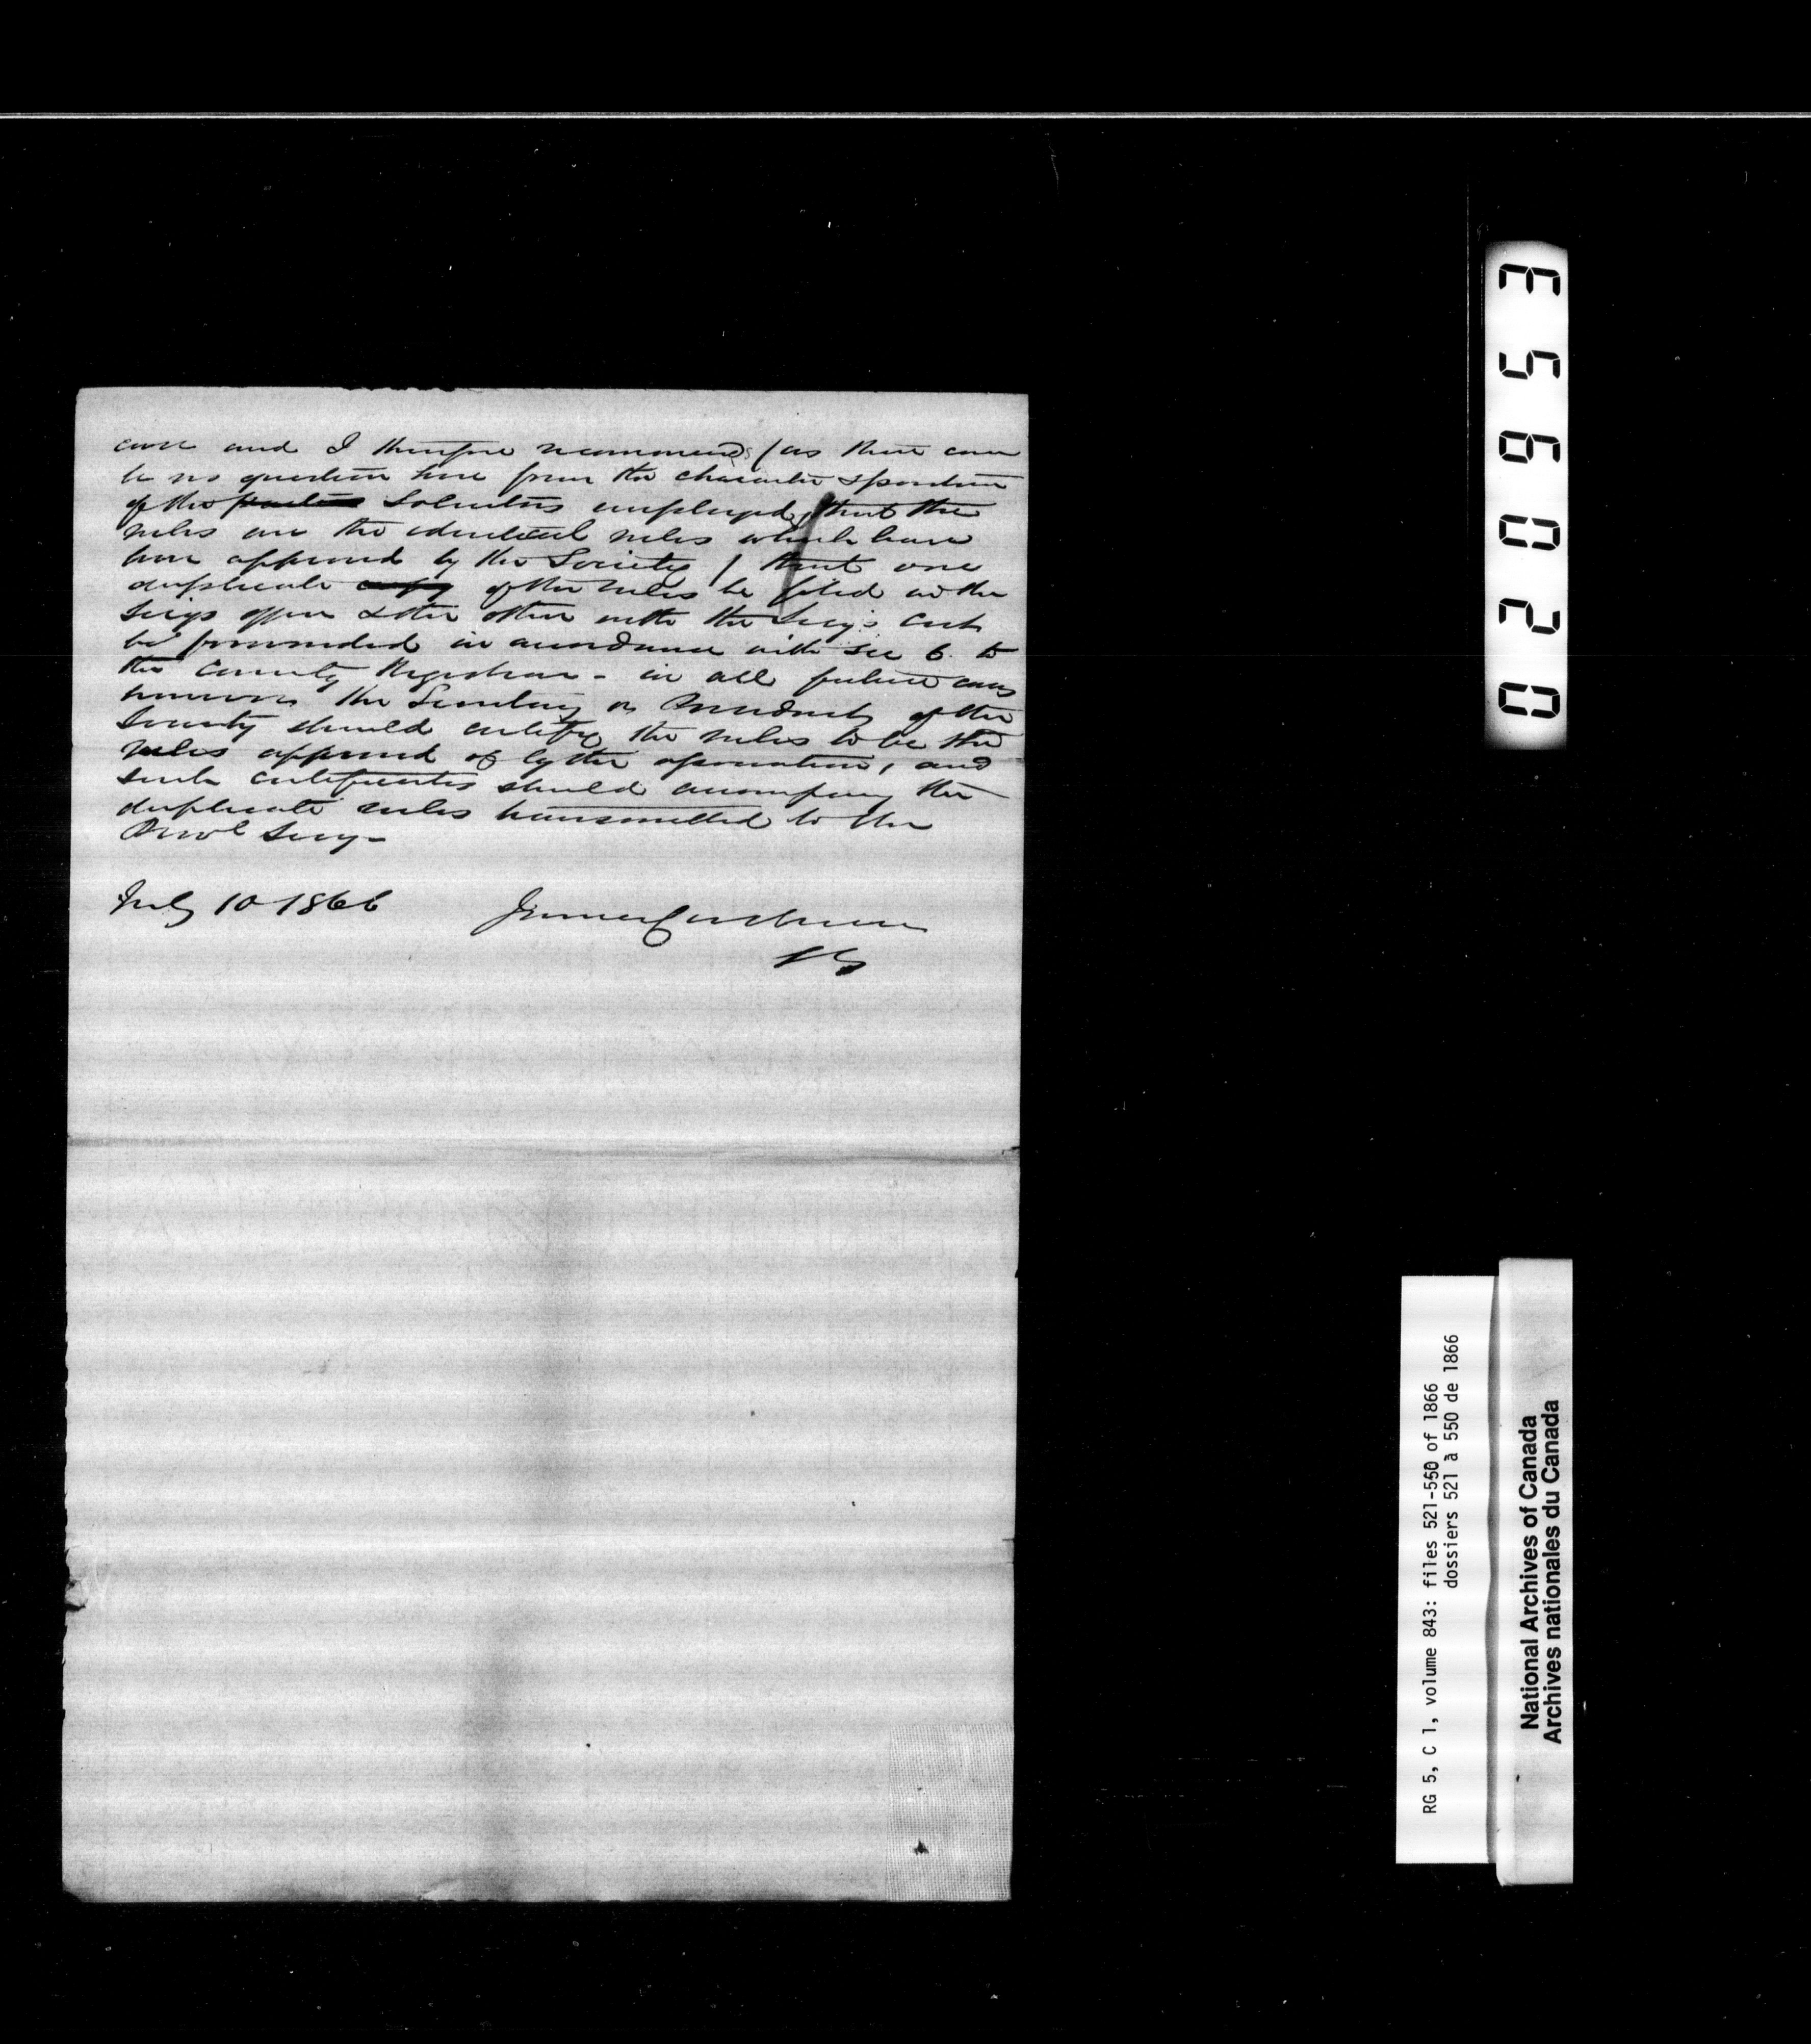 case and I therefore recommend (as there can
be no question here from the character & position
of the Solicitors employed, that the
rules are the identical rules which have
been approved by the Society) that one
duplicate copy of the rules be filed in the
Secys office & the other with the Secy's Cert
be forwarded in accordance with sec 6. to
the County Registrar - in all future cases
however the Secretary or President of the
Society should certify the rules to be the
rules approved of by the association, and
such certificates should accompany the
duplicate rules transmitted to the
Provl Secy -
July 10 1866 James Cockburn
SG
020953
RG 5, C 1, volume 843: files 521-550 of 1866
dossiers 521 à 550 de 1866
National Archives of Canada
Archives nationales du Canada